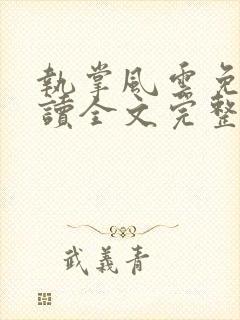 執掌風雲免
讀全文完整
武義青